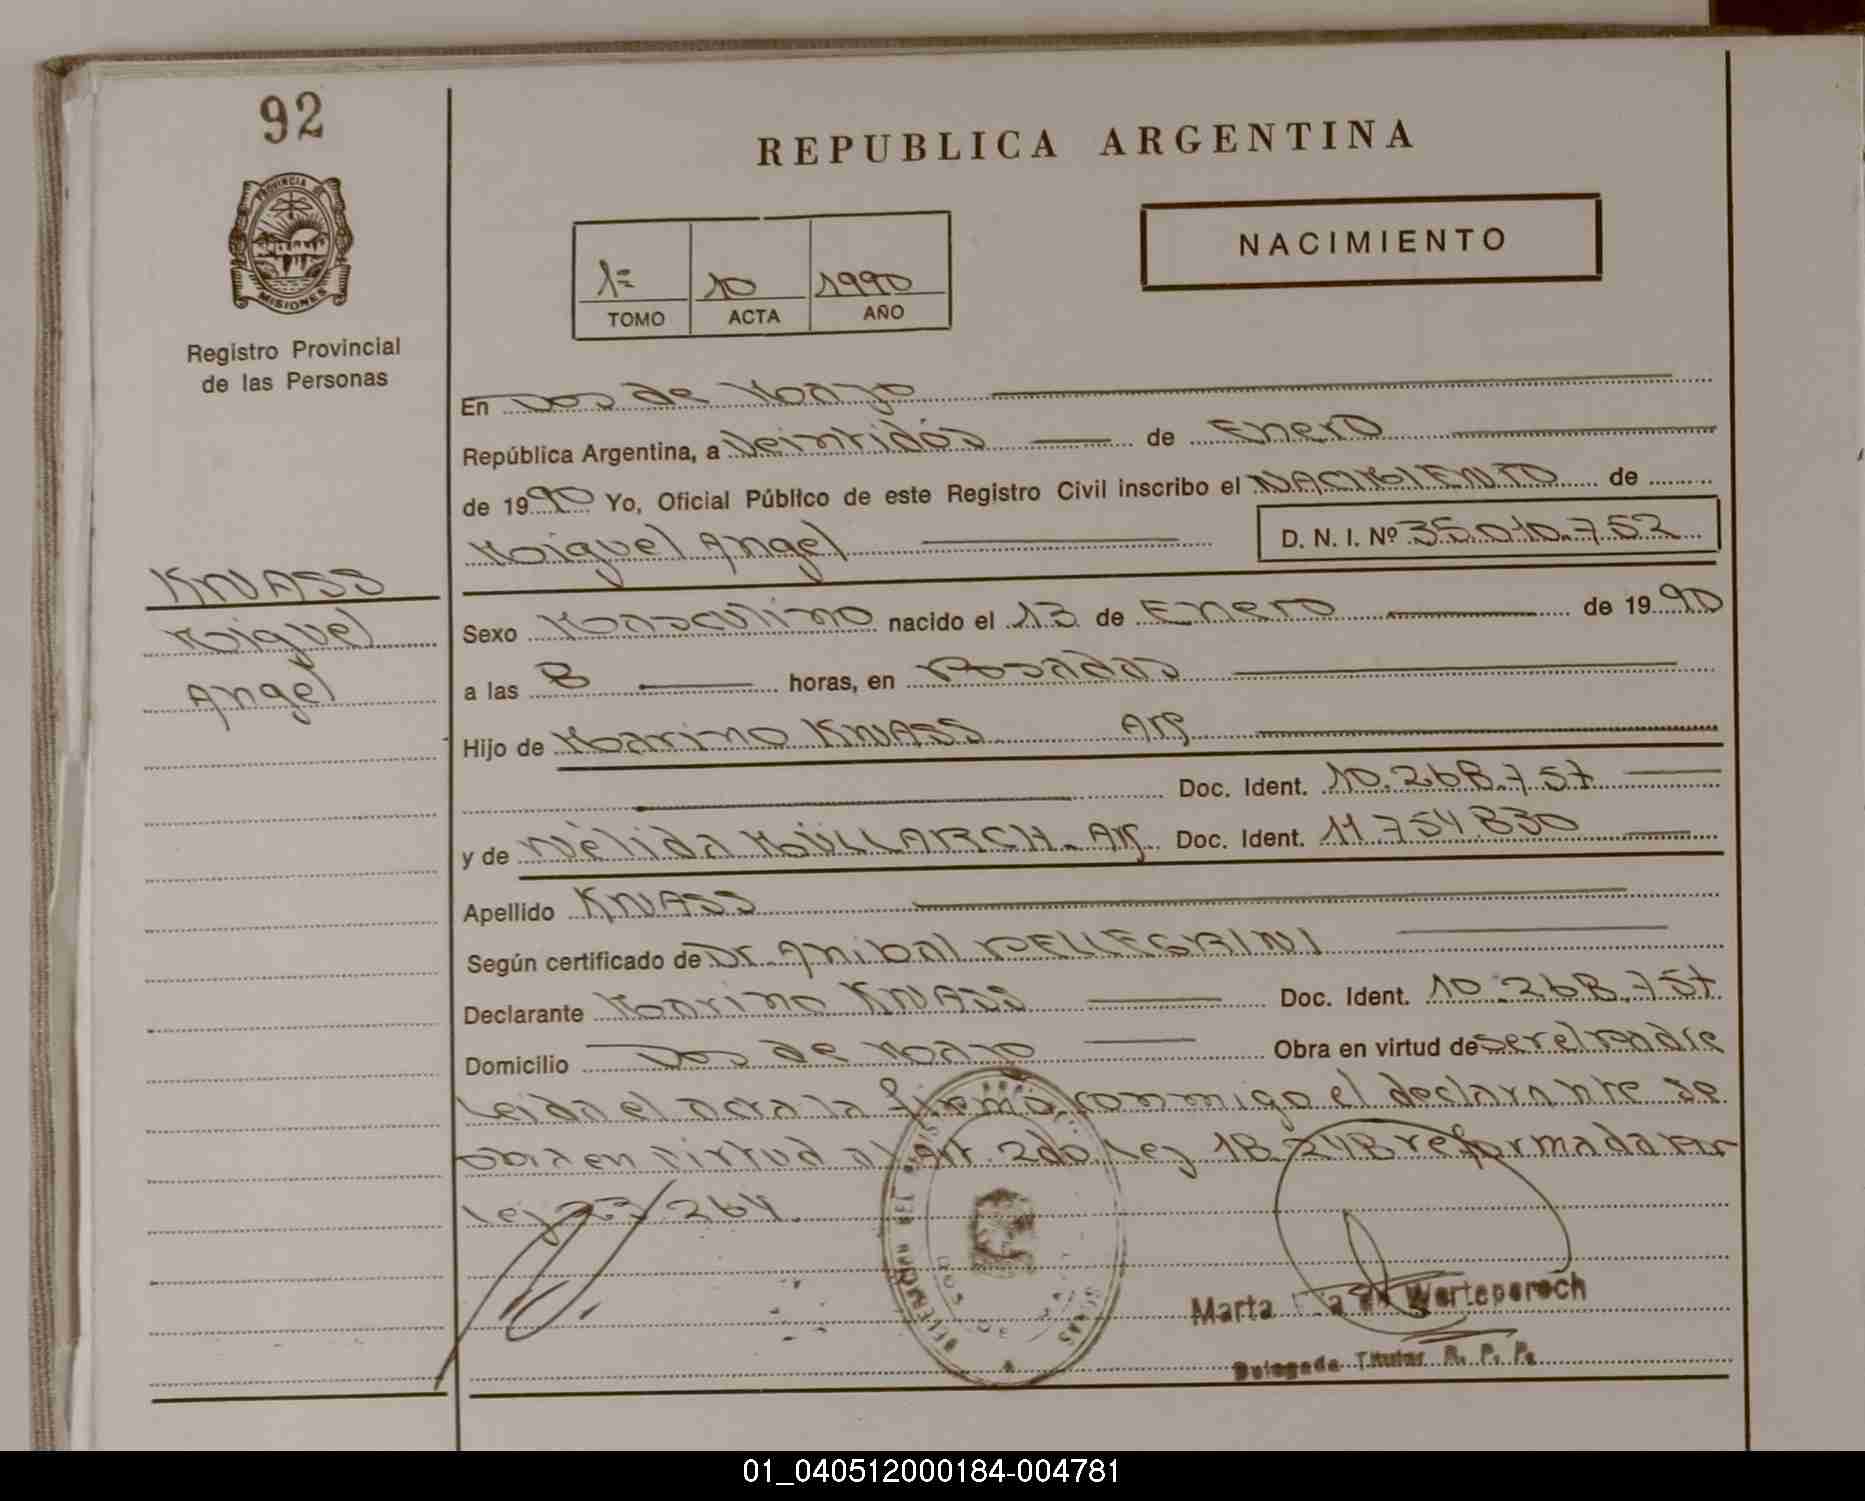 92
REPUBLICA ARGENTINA
PROVINCIA DE
MISIONES
NACIMIENTO
1= 10 1990
TOMO ACTA AÑO
Registro Provincial
de las Personas
En Dos de Mayo
República Argentina, a Veintidós de Enero
de 1990 Yo, Oficial Público de este Registro Civil inscribo el NACIMIENTO de
Miguel Angel D. N. I. Nº 35.010.752
KNASS
Miguel
Angel
Sexo Masculino nacido el 13 de Enero de 1990
a las 8 horas, en Posadas
Hijo de Marino KNASS Arg
Doc. Ident. 10.268.757
y de Nélida MÜLLARCH - Arg Doc. Ident. 11.754.830
Apellido KNASS
Según certificado de Dr. Anibal PELLEGRINI
Declarante Marino KNASS Doc. Ident. 10.268.757
Domicilio Dos de Mayo Obra en virtud de ser el padre
Leida el acta la firma conmigo el declarante se
obra en virtud al Art. 2do. Ley 18.248 reformada por
ley 23/264.
Marta de Werteperech
Delegada Titular R. P. P.
01_040512000184-004781